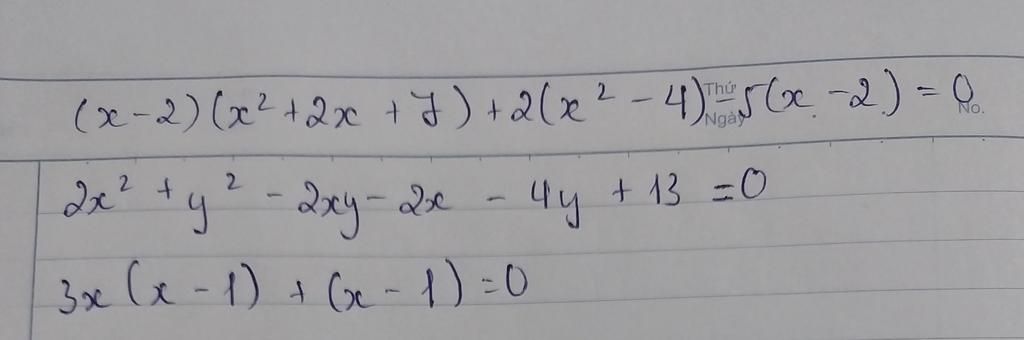 (x-2)(x² + 2x + 7) + 2(x² - 4) - 5(x - 2) = 0
Thứ
Ngày
No.
2x² + y² - 2xy - 2x - 4y + 13 = 0
3x(x - 1) + (x - 1) = 0